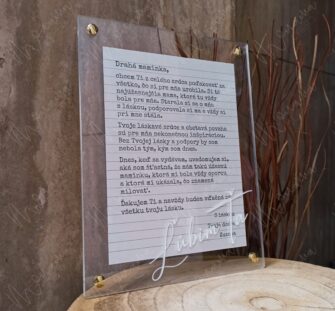 Drahá maminka,
chcem Ti z celého srdca poďakovať za
všetko, čo si pre mňa urobila. Si tá
najúžasnejšia mama, ktorá tu vždy
bola pre mňa. Starala si sa o mňa
s láskou, podporovala si ma a vždy si
pri mne stála.
Tvoje láskavé srdce a obetavá povaha
sú pre mňa nekonečnou inšpiráciou.
Bez Tvojej lásky a podpory by som
nebola tým, kým som dnes.
Dnes, keď sa vydávam, uvedomujem si,
aká som šťastná, že mám takú úžasnú
maminku, ktorá mi bola vždy oporou
a ktorá mi ukázala, čo znamená
milovať.
Ďakujem Ti a navždy budem vďačná za
všetku tvoju lásku.
S láskou
Tvoja dcéra
Ľúbim Ťa